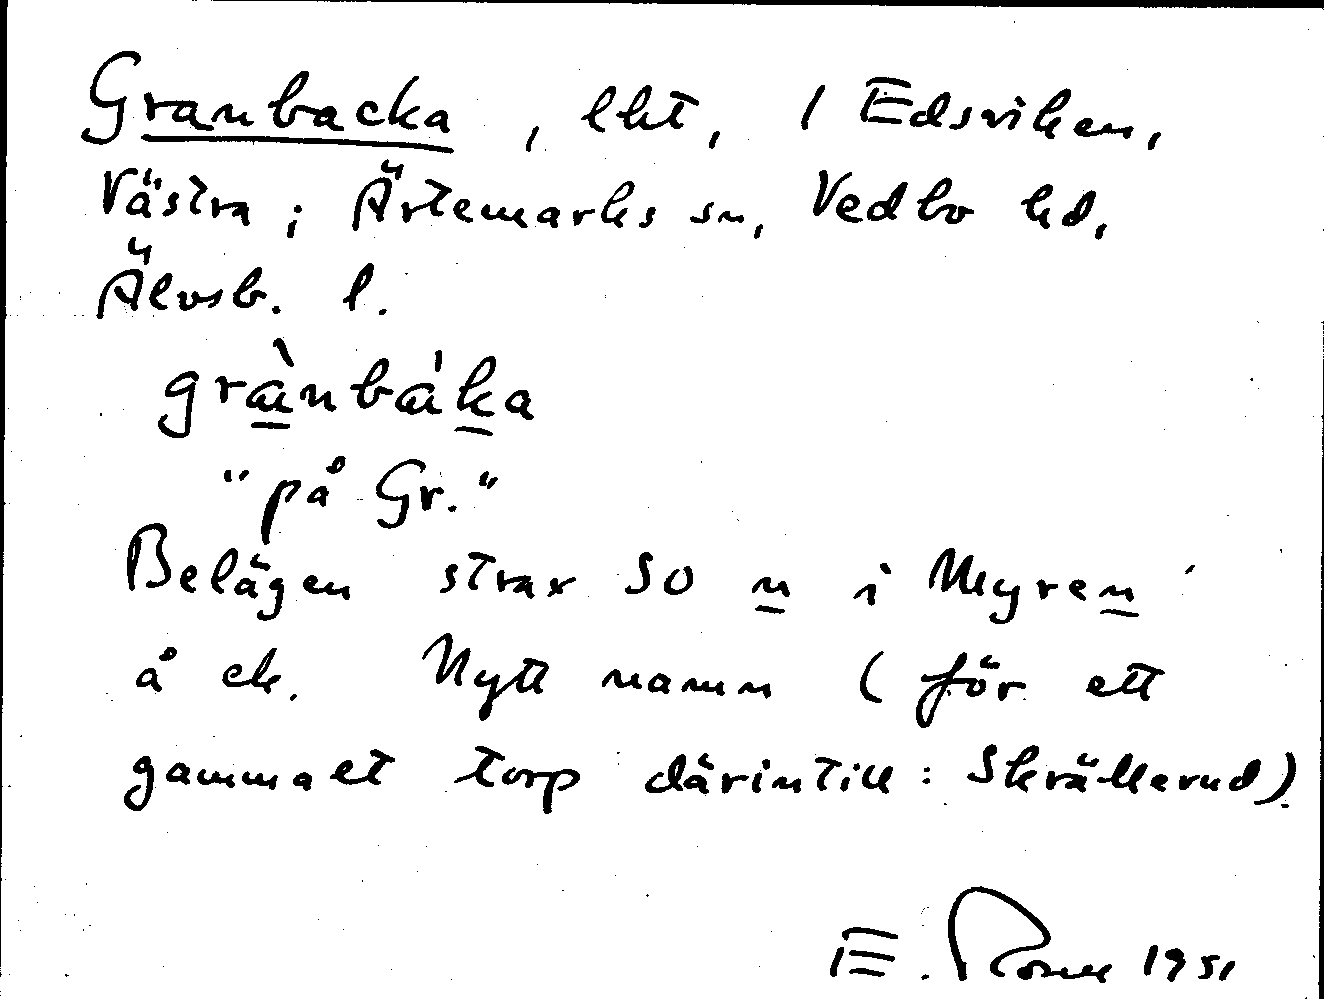 Granbacka, lht, 1 Edsviken,
Västra; Ärtemarks sn, Vedbo hd,
Älvsb. l.
grànbáka
"på Gr."
Belägen strax SO n i Myren
å ek. Nytt namn (för ett
gammalt torp därintill: Skrällerud)
E. 1951